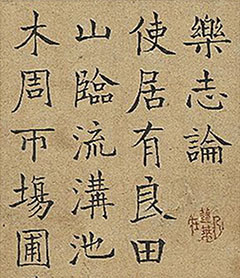 樂志論
使居有良田
山臨流溝池
木周帀塲圃